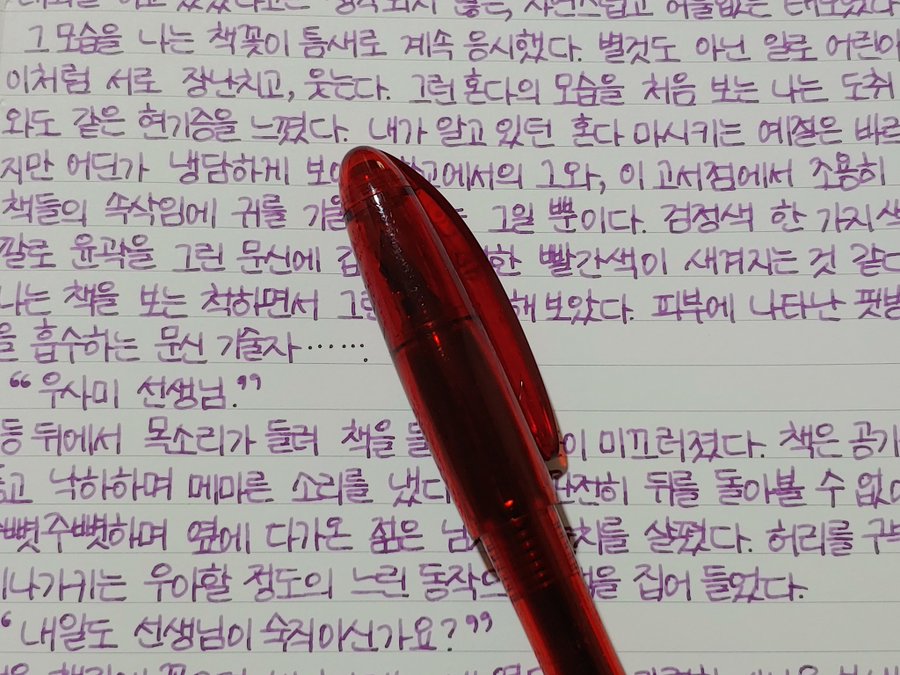 그 모습을 나는 책꽂이 틈새로 계속 응시했다. 별것도 아닌 일로 어린아
이처럼 서로 장난치고, 웃는다. 그런 혼다의 모습을 처음 보는 나는 도취
와도 같은 현기증을 느꼈다. 내가 알고 있던 혼다 마사키는 예절은 바르
지만 어딘가 냉담하게 에서의 그와, 이 고서점에서 조용히
책들의 속삭임에 귀를 그일 뿐이다. 검정색 한 가지 색
깔로 윤곽을 그린 문신에 빨간색이 새겨지는 것 같다
나는 책을 보는 척하면서 해 보았다. 피부에 나타난
을 흡수하는 문신 기술자……
“우사미 선생님.”
등 뒤에서 목소리가 들려 책을 이 미끄러졌다. 책은 공기
낙하하며 메마른 소리를 냈다 완전히 뒤를 돌아볼 수 없
주뼛하며 옆에 다가온 젊은 를 살폈다. 허리를 구부
나가키는 우아할 정도의 느린 동작으로 집어 들었다.
“내일도 선생님이 숙직이신가요?”